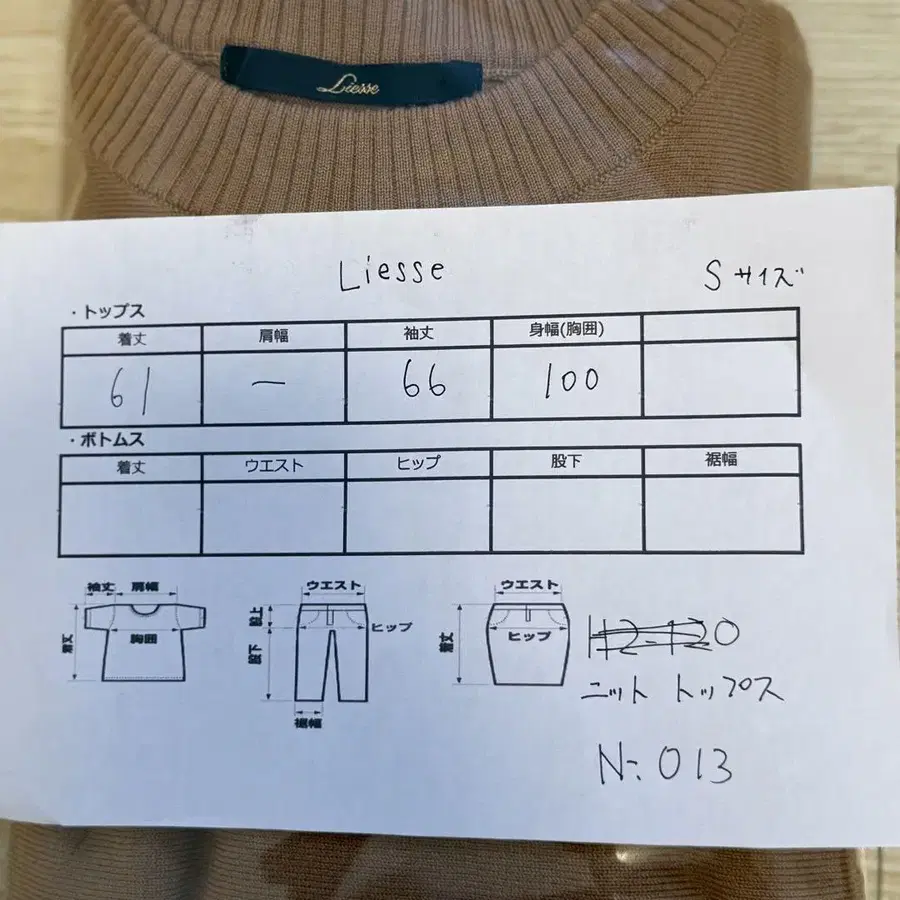 Liesse
Liesse
Sサイズ
・トップス
着丈 肩幅 袖丈 身幅(胸囲)
61 ー 66 100
・ボトムス
着丈 ウエスト ヒップ 股下 裾幅
袖丈 肩幅
着丈
胸囲
ウエスト
股上
ヒップ
股下
裾幅
ウエスト
着丈
ヒップ
ニット トップス
N:013